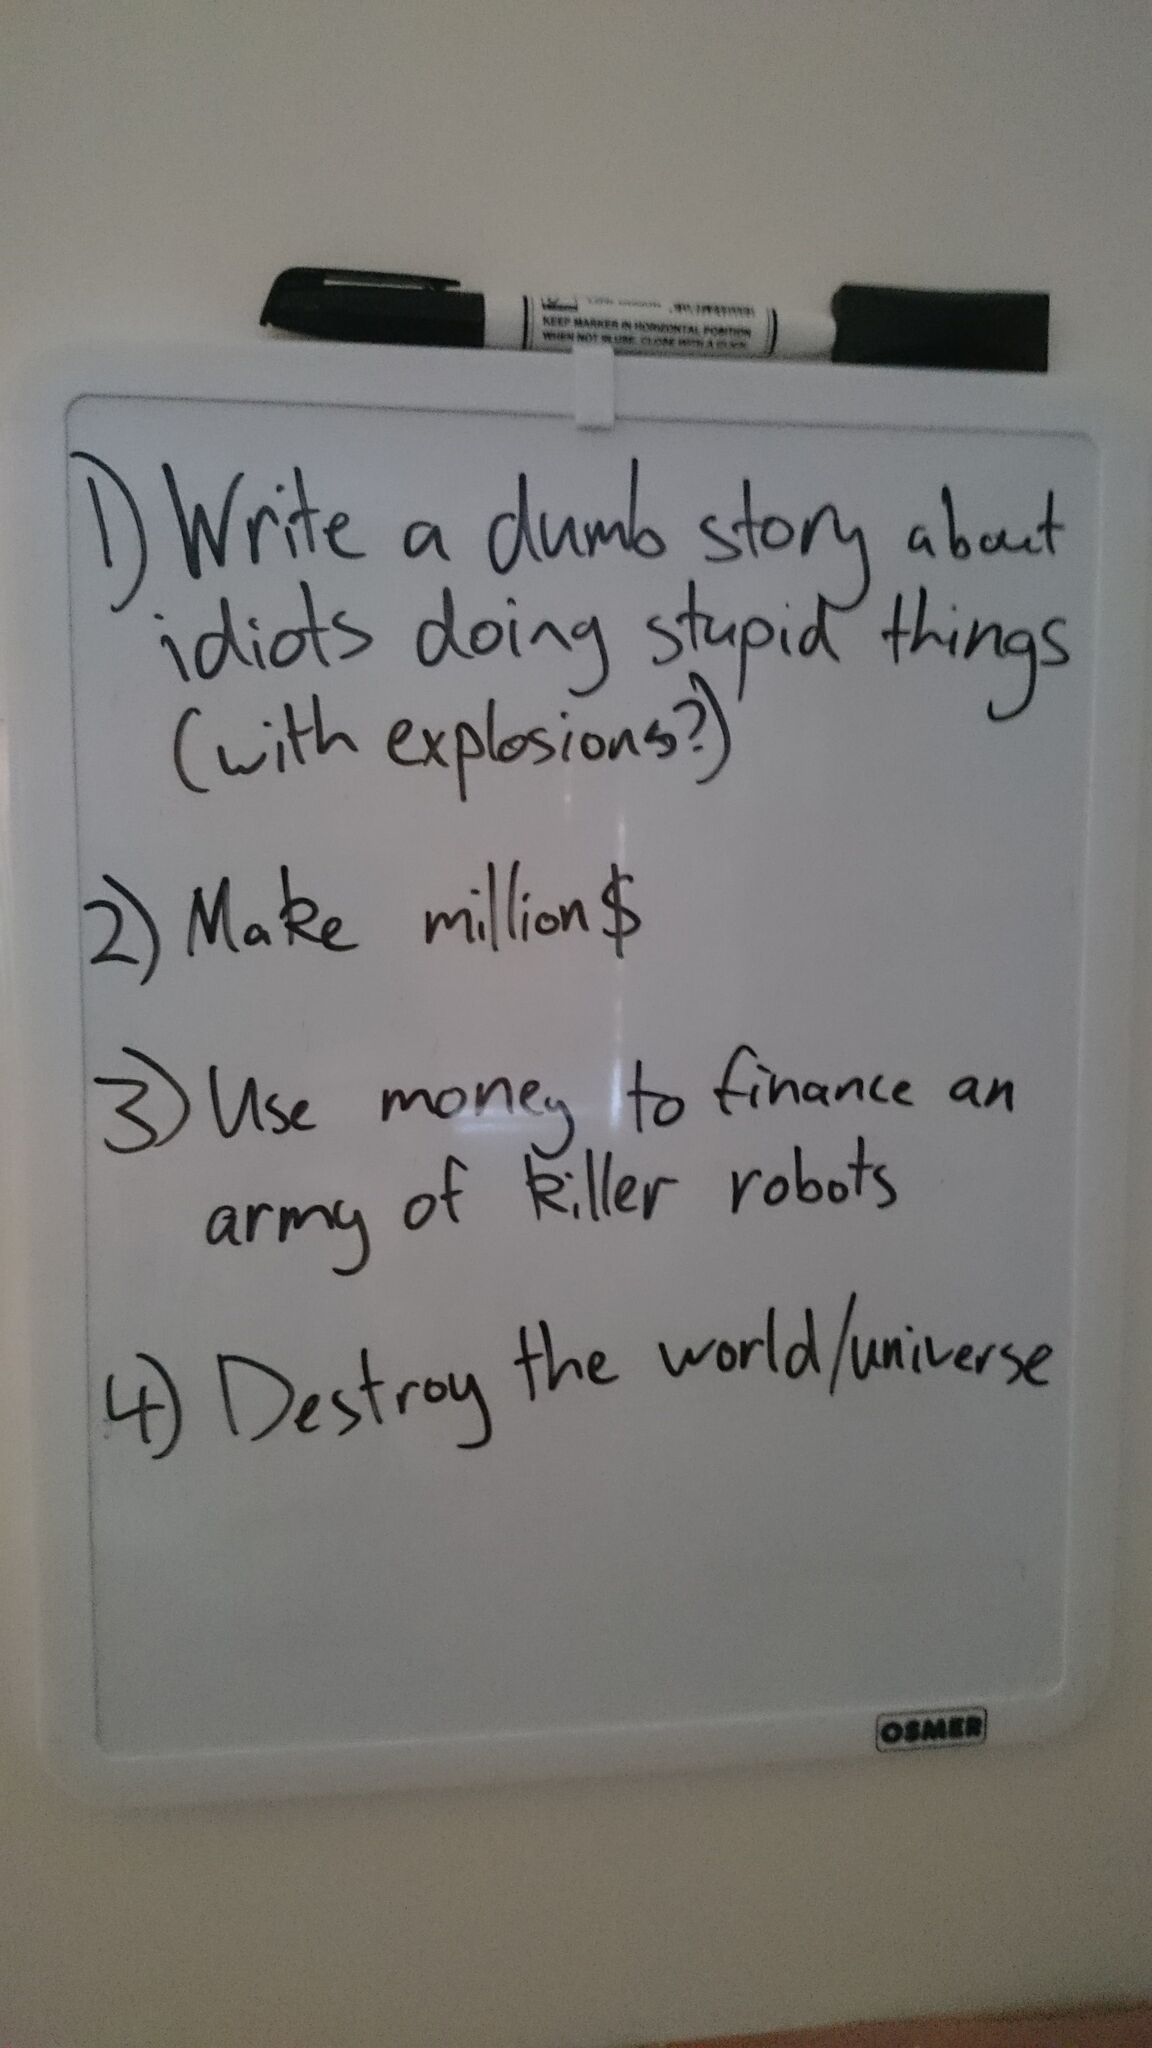 KEEP MARKER IN HORIZONTAL POSITION
WHEN NOT IN USE. CLOSE WITH A CLICK
1) Write a dumb story about
idiots doing stupid things
(with explosions?)
2) Make million$
3) Use money to finance an
army of killer robots
4) Destroy the world/universe
OSMER